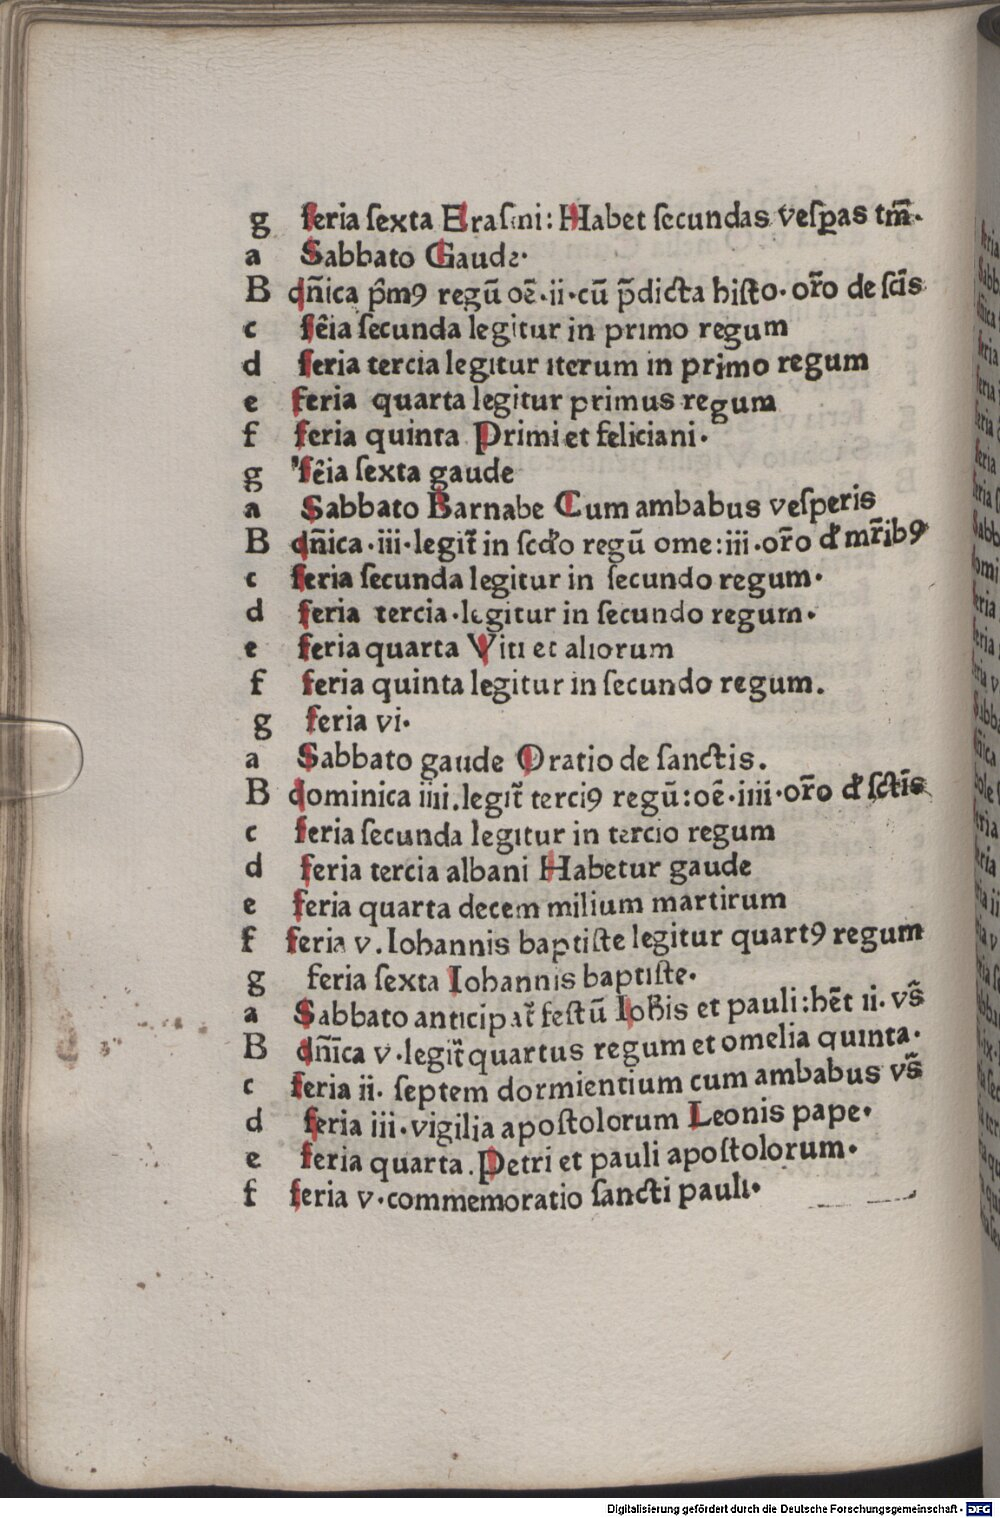 g feria ſexta Eraſmi: Habet ſecundas veſꝑas tm̄.
a Sabbato Gaude.
B dn̄ica p̄m9 regū oē.ii.cū p̄dicta hiſto. or̄o de ſc̄is
c fēia ſecunda legitur in primo regum
d feria tercia legitur iterum in primo regum
e feria quarta legitur primus regum
f feria quinta Primi et feliciani.
g fēia ſexta gaude
a Sabbato Barnabe Cum ambabus veſperis
B dn̄ica.iii.legit̄ in ſcd̄o regū ome:iii.or̄o d̄ mr̄ib9
c feria ſecunda legitur in ſecundo regum.
d feria tercia.legitur in ſecundo regum.
e feria quarta Viti et aliorum
f feria quinta legitur in ſecundo regum.
g feria vi.
a Sabbato gaude Oratio de ſanctis.
B dominica iiii.legit̄ terci9 regū:oē.iiii.or̄o d̄ ſct̄is
c feria ſecunda legitur in tercio regum
d feria tercia albani Habetur gaude
e feria quarta decem milium martirum
f feria v. Iohannis baptiſte legitur quart9 regum
g feria ſexta Iohannis baptiſte.
a Sabbato anticipat̄ feſtū Ioh̄is et pauli:hēt ii. vs̄
B dn̄ica v.legit̄ quartus regum et omelia quinta.
c feria ii. ſeptem dormientium cum ambabus vs̄
d feria iii.vigilia apoſtolorum Leonis pape.
e feria quarta. Petri et pauli apoſtolorum.
f feria v.commemoratio ſancti pauli.
Digitalisierung gefördert durch die Deutsche Forschungsgemeinschaft - DFG